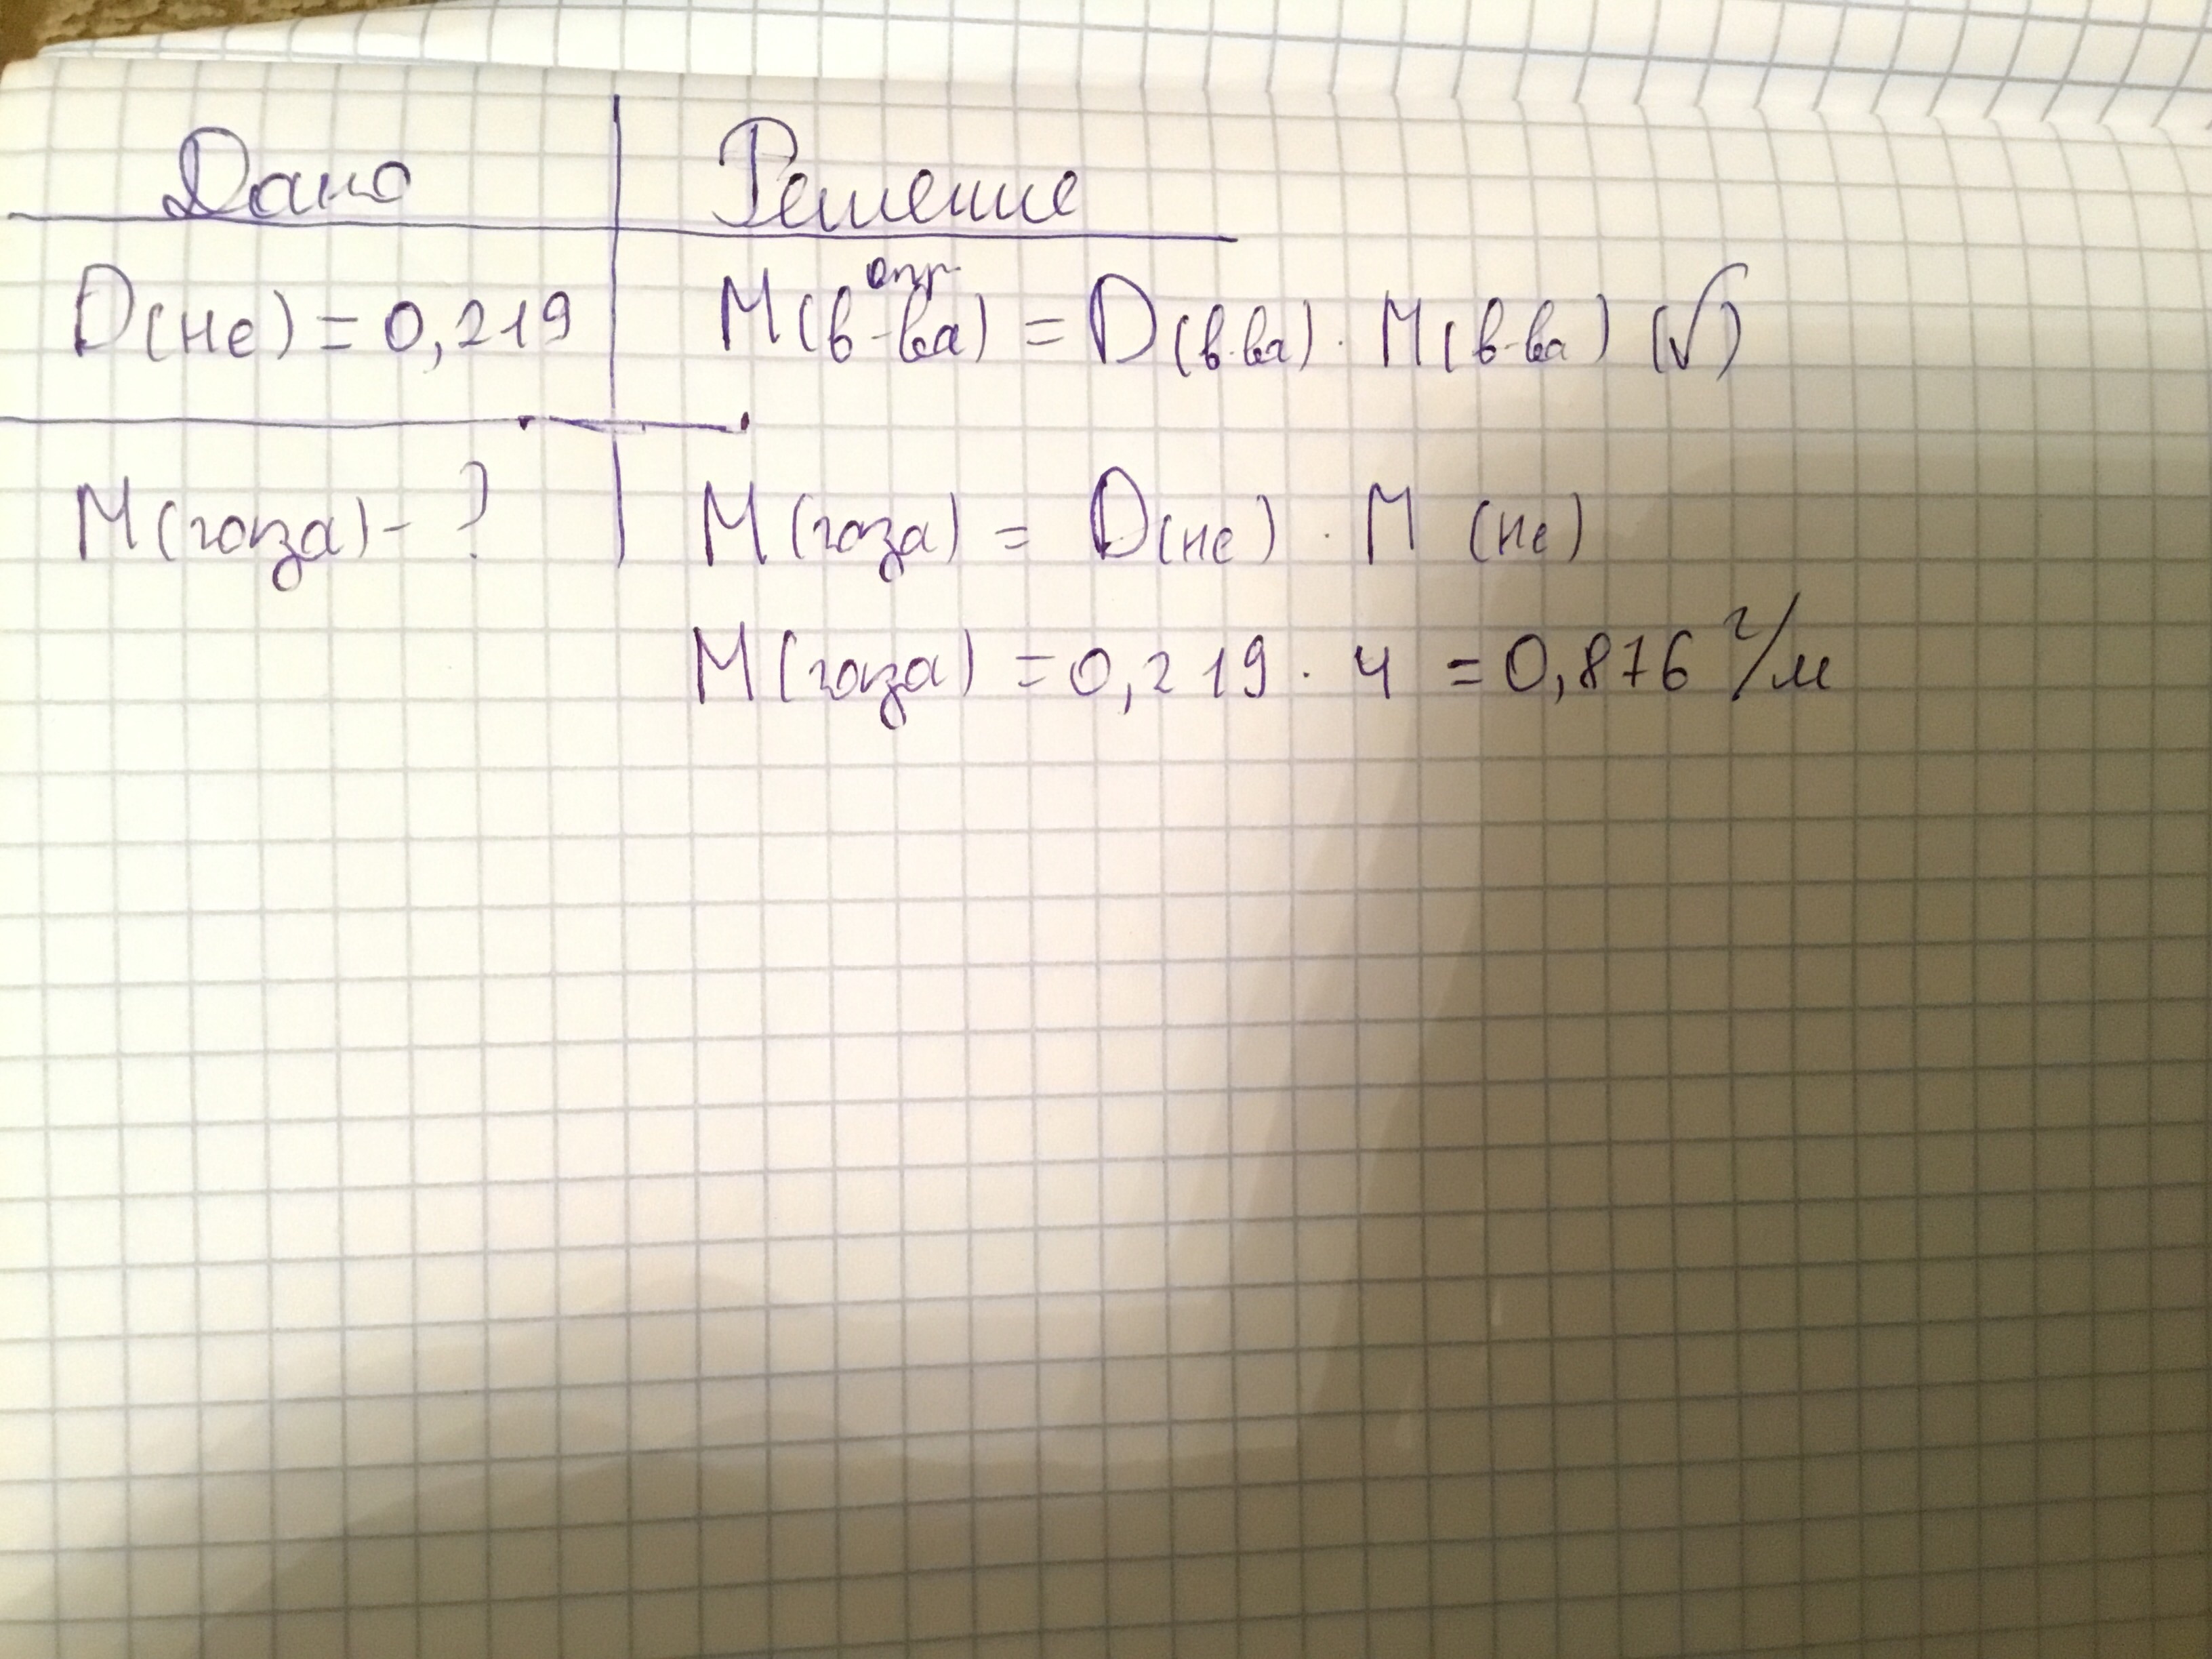 Дано
Решение
D(не) = 0,219
опр
M(в-ва) = D(в-ва) · M(в-ва) (√)
M(газа) - ?
M(газа) = D(не) · M (не)
M(газа) = 0,219 · 4 = 0,876 г/м